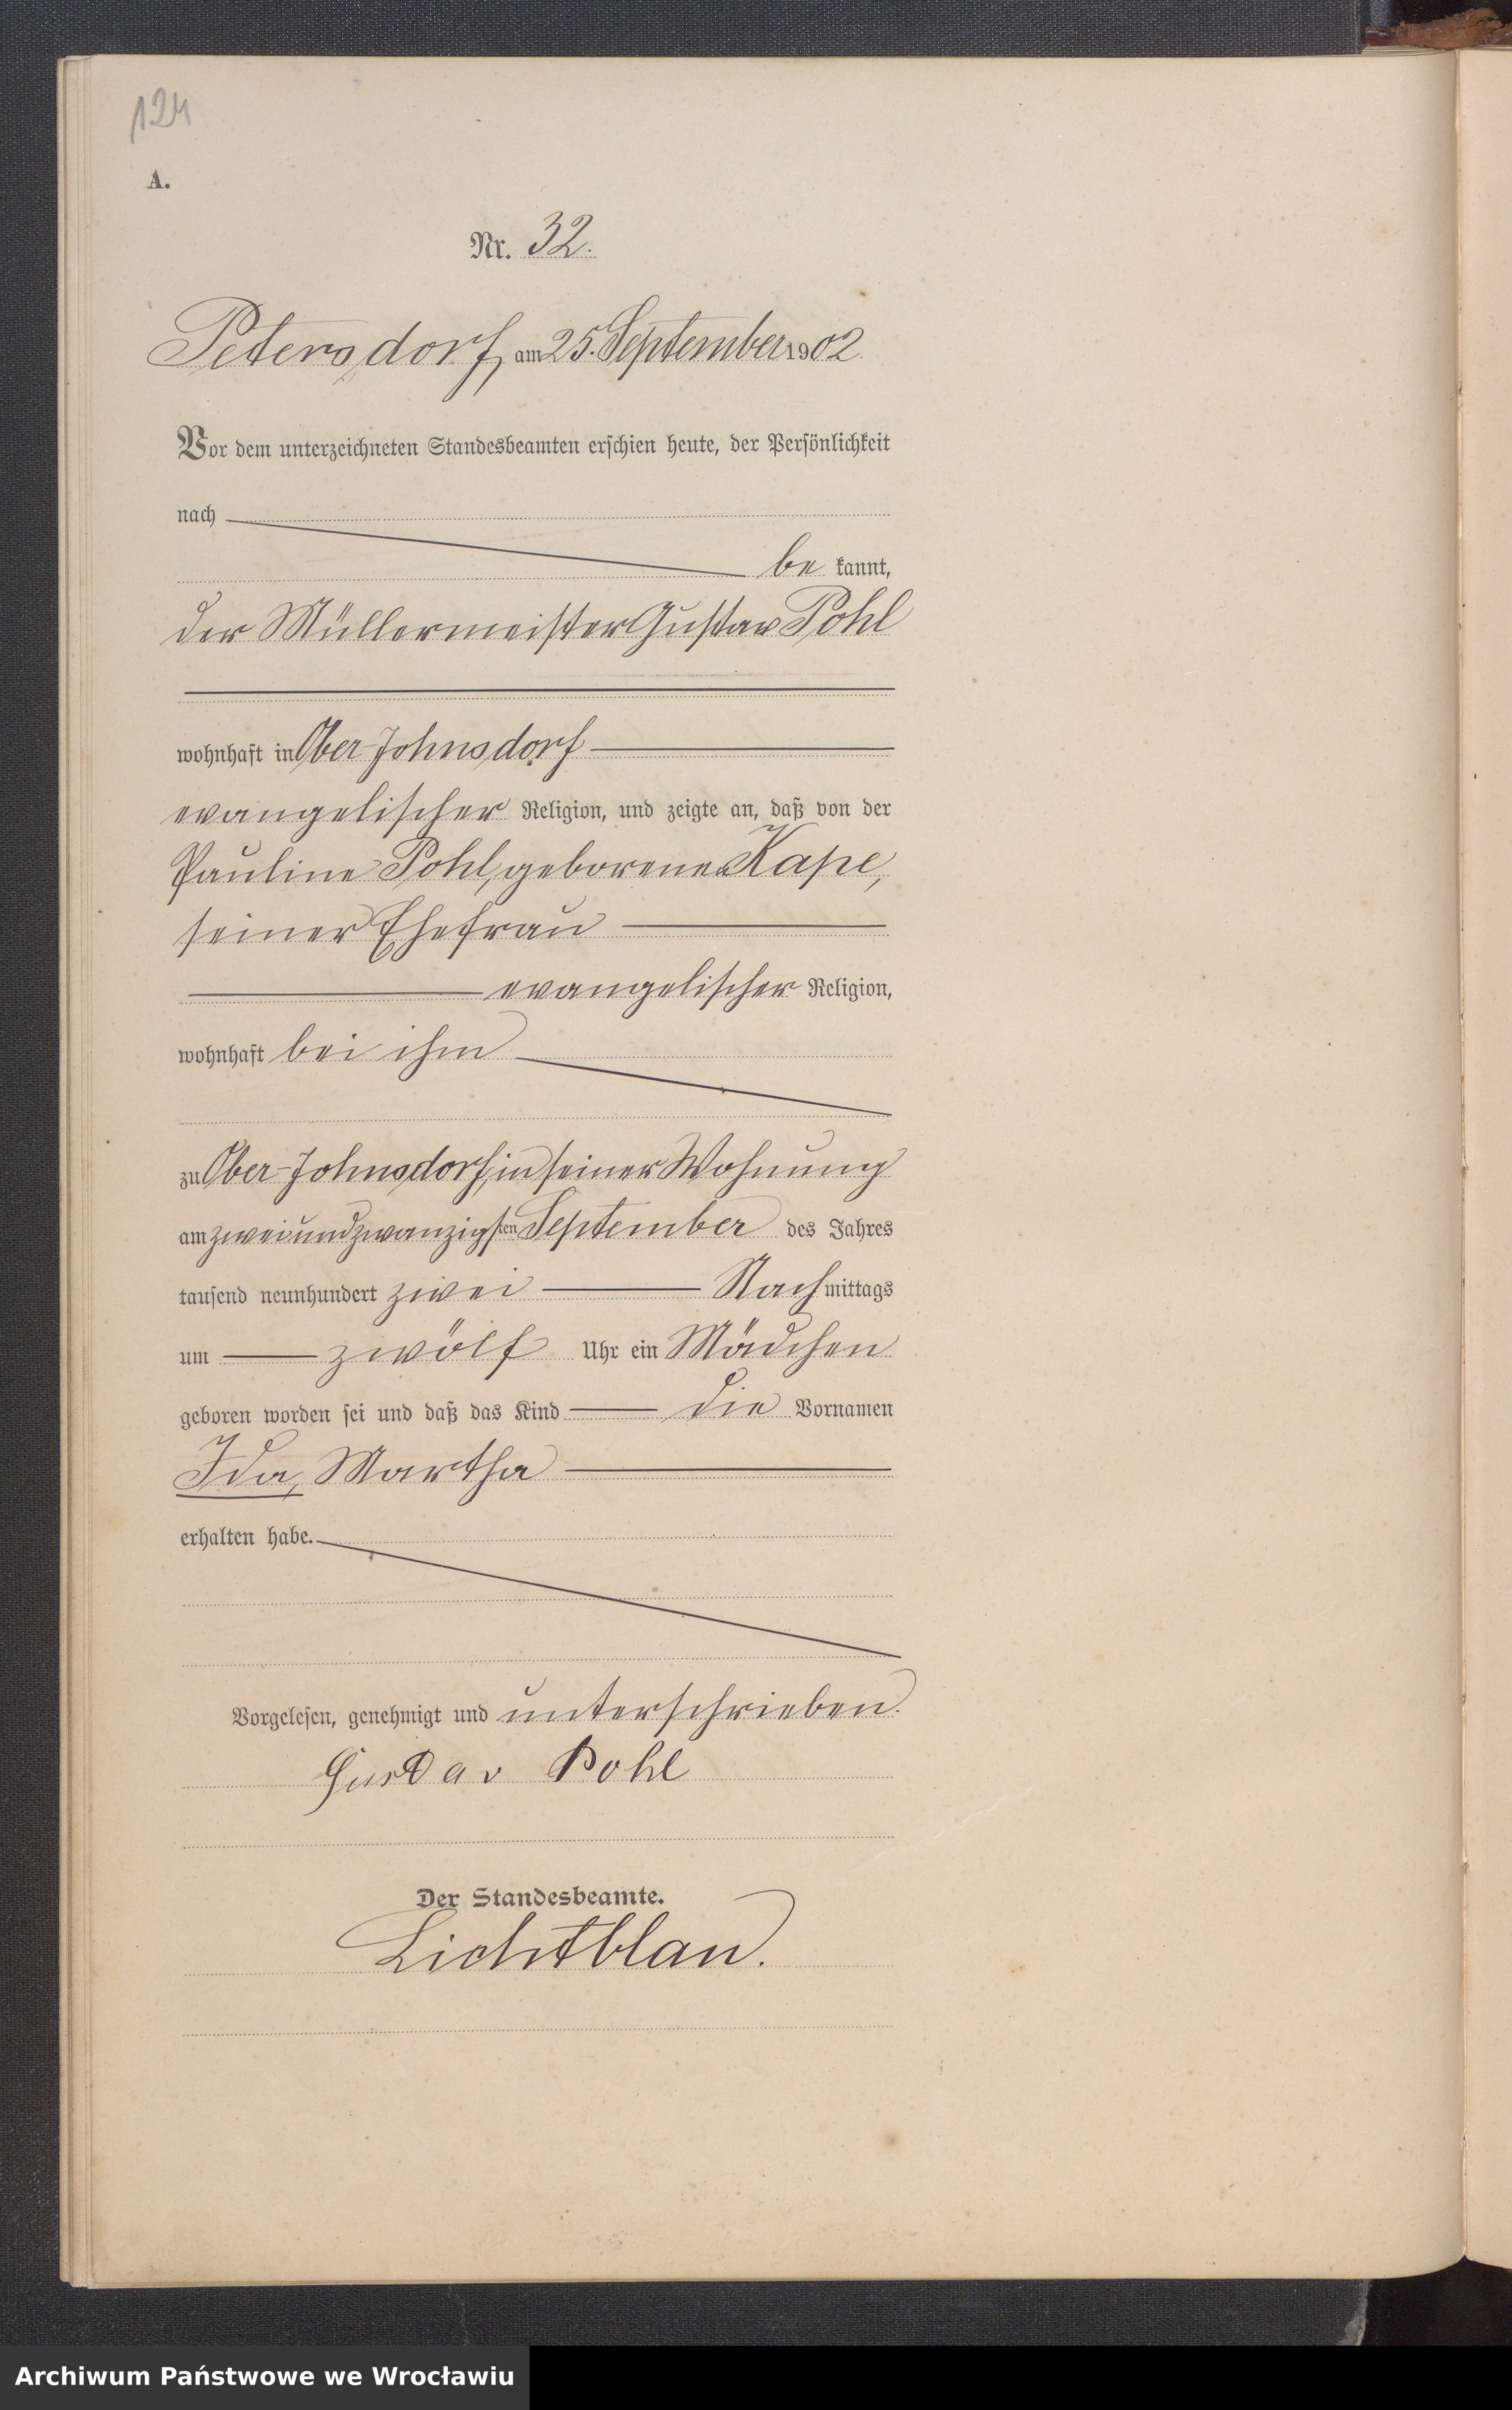 124
A.
Nr. 32.
Petersdorf, am 25. September 1902.
Vor dem unterzeichneten Standesbeamten erschien heute, der Persönlichkeit
nach
be kannt,
der Müllermeister Gustav Pohl
wohnhaft in Ober-Johnsdorf
evangelischer Religion, und zeigte an, daß von der
Pauline Pohl, geborenen Kape,
seiner Ehefrau
evangelischer Religion,
wohnhaft bei ihm
zu Ober-Johnsdorf, in seiner Wohnung
am zweiundzwanzigsten September des Jahres
tausend neunhundert zwei Nachmittags
um zwölf Uhr ein Mädchen
geboren worden sei und daß das Kind die Vornamen
Ida, Martha
erhalten habe.
Vorgelesen, genehmigt und unterschrieben.
Gustav Pohl
Der Standesbeamte.
Lichtblau.
Archiwum Państwowe we Wrocławiu